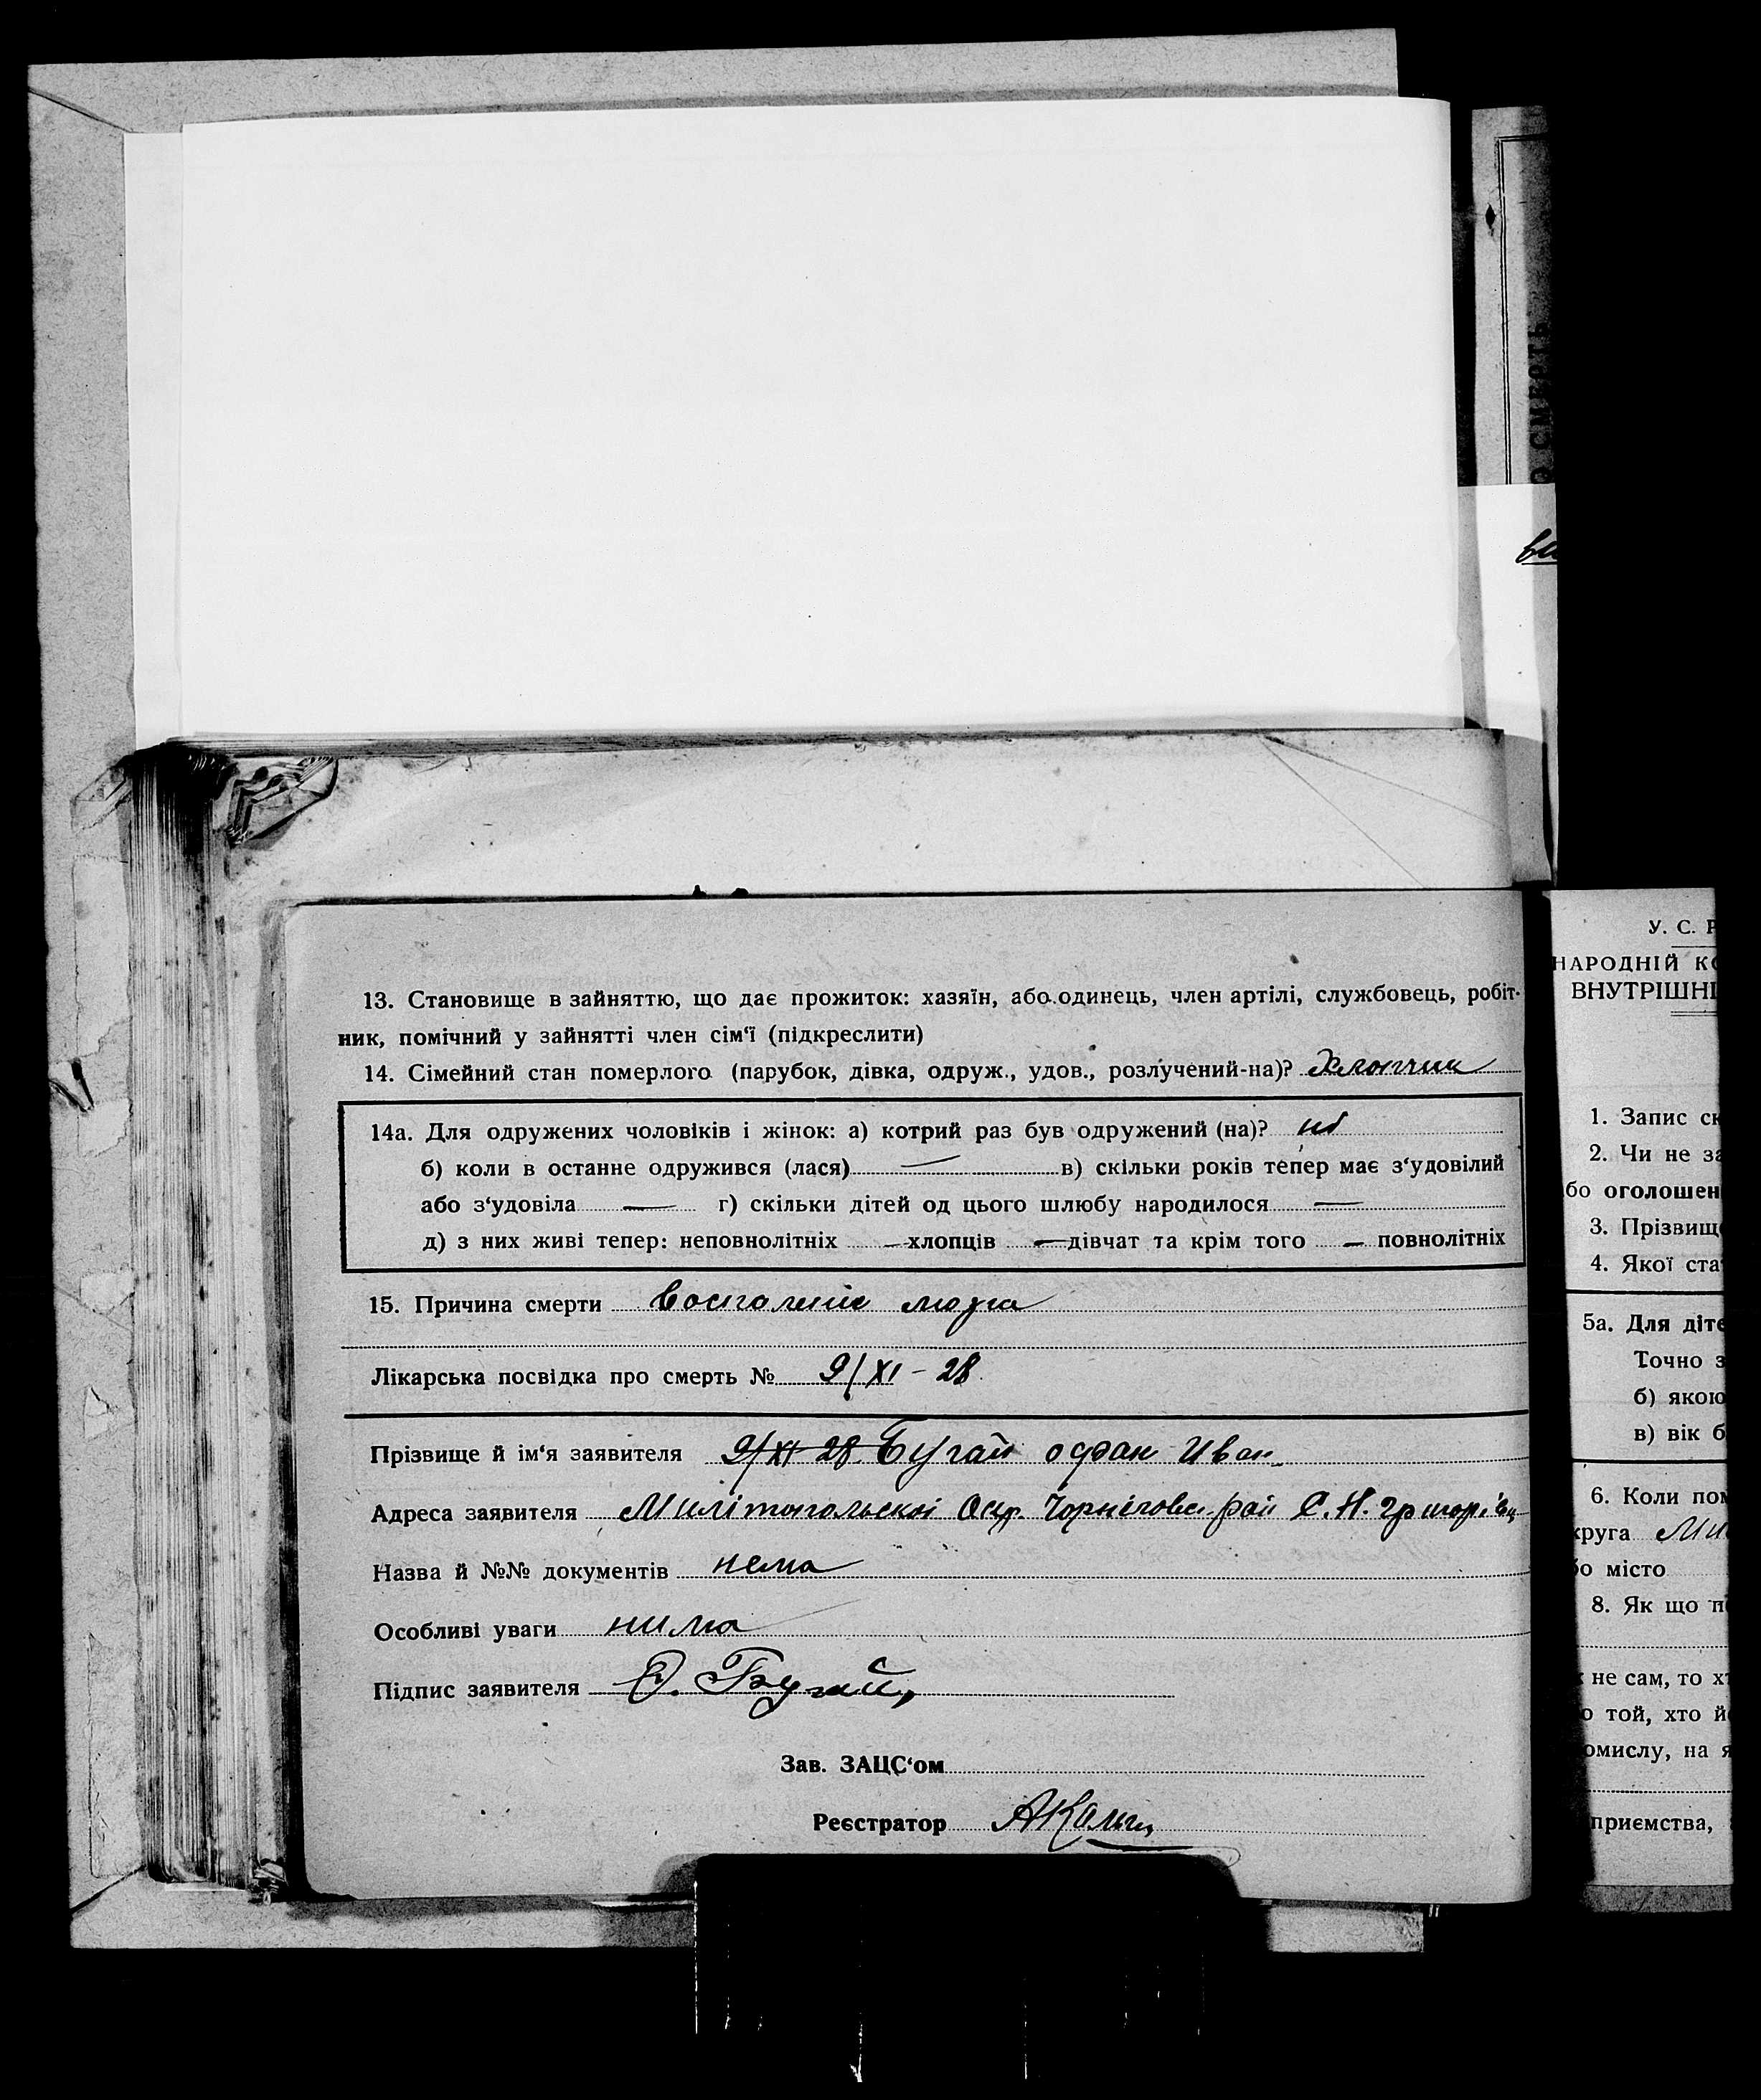 О СМЕРТЬ
13. Становище в зайняттю, що дає прожиток: хазяїн, або одинець, член артілі, службовець, робіт-
ник, помічний у зайнятті член сім‘ї (підкреслити)
14. Сімейний стан померлого (парубок, дівка, одруж., удов., розлучений-на)? Хлопчик
14а. Для одружених чоловіків і жінок: а) котрий раз був одружений (на)?
б) коли в останне одружився (лася) — в) скільки років тепер має з‘удовілий
або з‘удовіла — г) скільки дітей од цього шлюбу народилося —
д) з них живі тепер: неповнолітніх — хлопців — дівчат та крім того — повнолітніх
15. Причина смерти воспаление мозга
Лікарська посвідка про смерть № 9/XI – 28.
Прізвище й ім‘я заявителя 9/XI 28 Бугай Иван
Адреса заявителя Милітопольскої Окр. Чорніговск. рай С. Н. Григорівц
Назва й №№ документів нема
Особливі уваги нима
Підпис заявителя Бугай
Зав. ЗАЦС‘ом
Реєстратор
У. С. Р
НАРОДНІЙ КО
ВНУТРІШНІ
1. Запис ск
2. Чи не за
бо оголошен
3. Прізвище
4. Якої ста
5а. Для діте
Точно з
б) якою
в) вік б
6. Коли пом
круга Ми
бо місто
8. Як що п
не сам, то х
о той, хто й
омислу, на я
приємства,